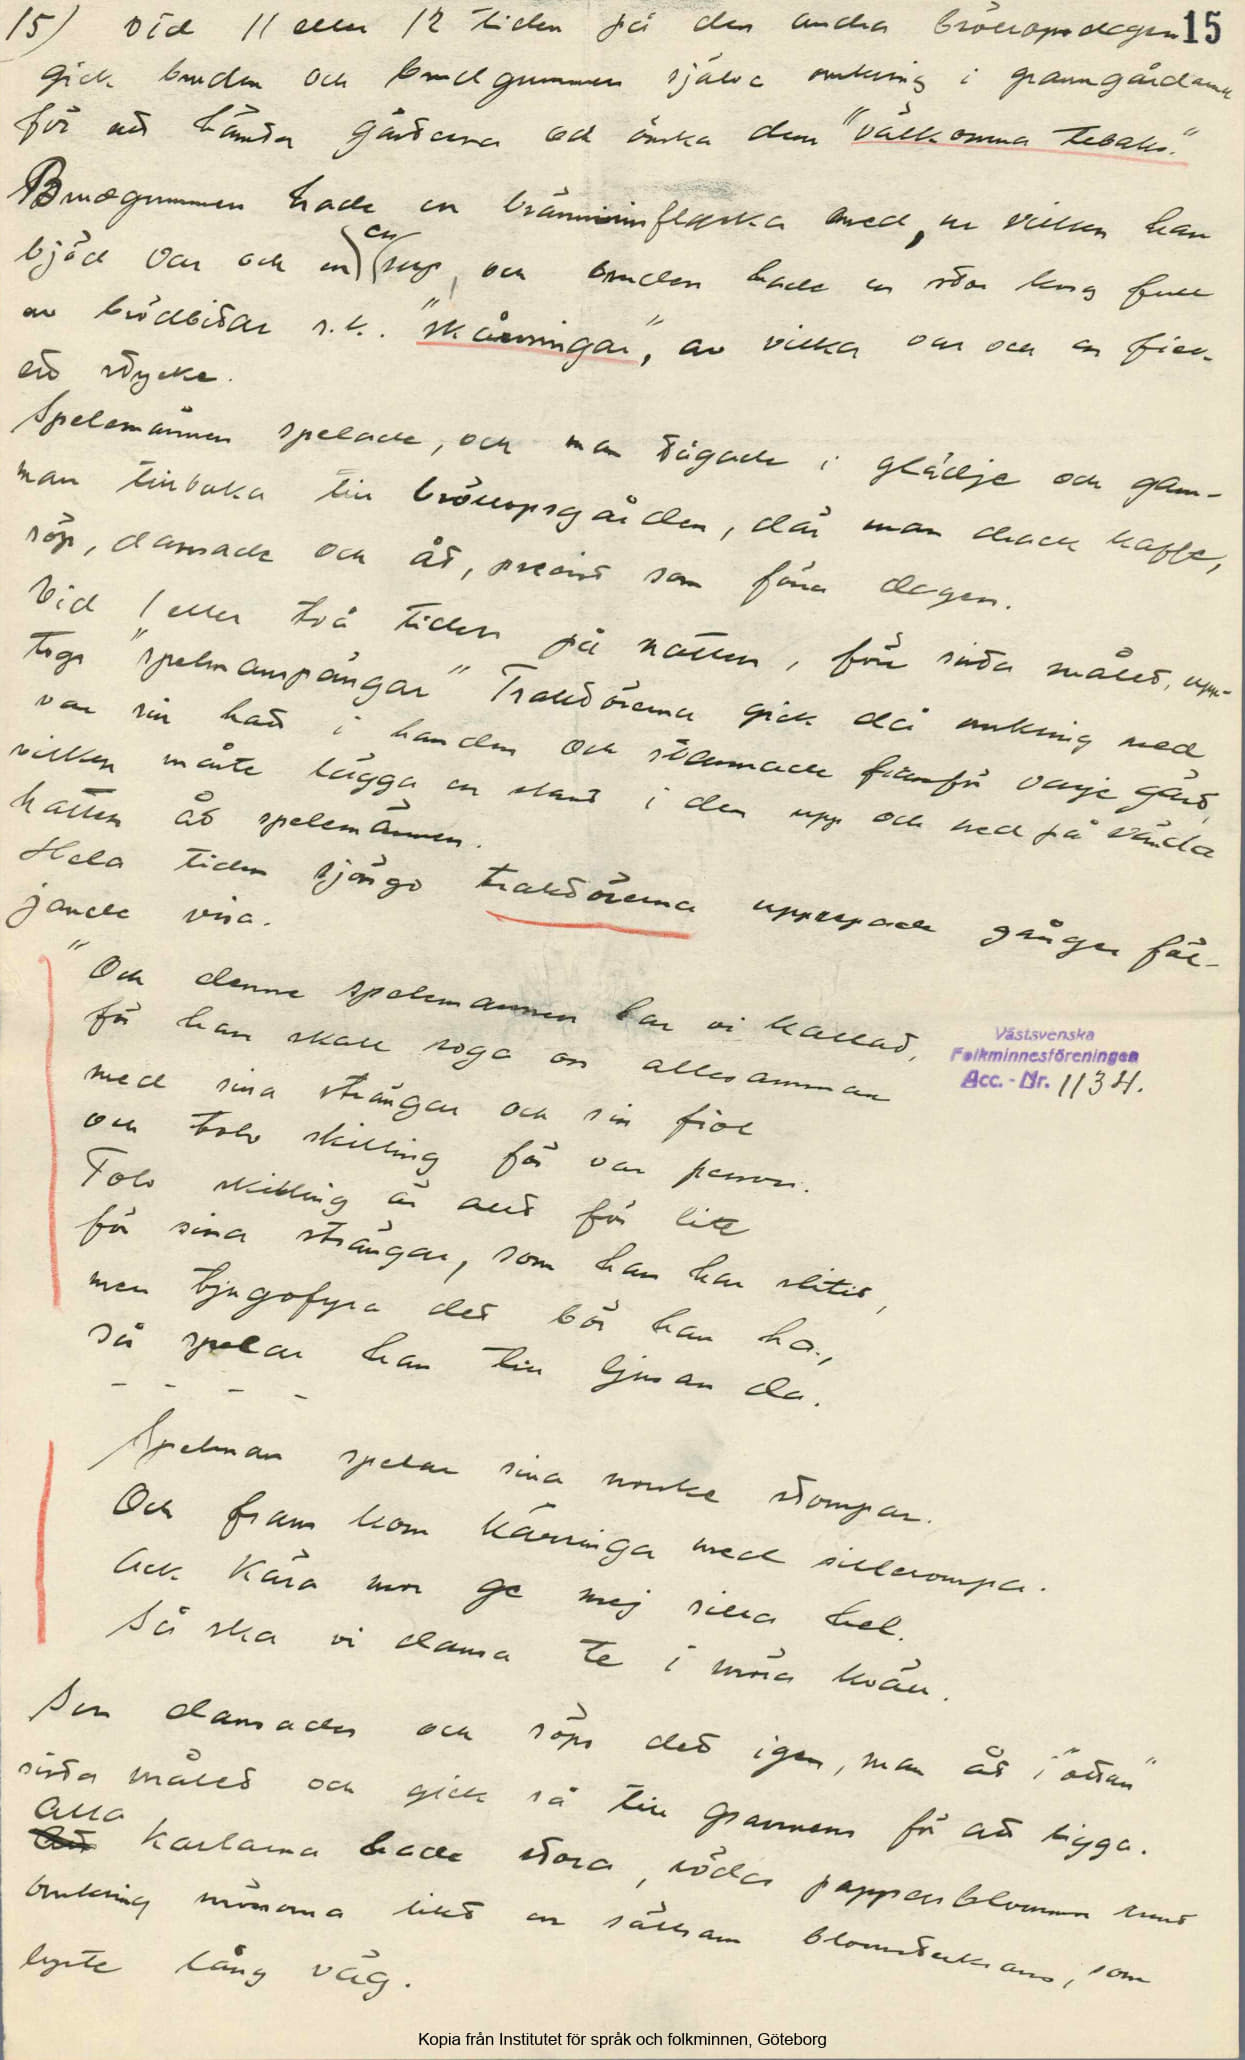 15) Vid 11 eller 12 tiden på den andra bröllopsdagen 15
gick bruden och brudgummen själva omkring i granngårdarna
för att hämta gästerna och önska dem "välkomna tebaks."
Brudgummen hade en brännvinsflaska med, ur vilken han
bjöd var och en en sup, och bruden hade en stor korg full
av brödbitar s.k. "skårningar", av vilka var och en fick
ett stycke.
Spelemännen spelade, och man tågade i glädje och gam-
man tillbaka till bröllopsgården, där man drack kaffe,
söp, dansade och åt, precist som förra dagen.
Vid 1 eller två tiden på natten, före sista målet, upp-
togs "spelmanspängar" Traktörerna gick då omkring med
var sin hatt i handen och stannade framför varje gäst,
vilken måste lägga en slant i den upp och ned på vända
hatten åt spelemännen.
Hela tiden sjöngo traktörerna upprepade gånger föl-
jande visa.
"Och denne spelemannen har vi kallat,
för han skall roga oss allesamman
med sina strängar och sin fiol
och tolv skilling för var person.
Tolv skilling är allt för lite
för sina strängar, som han har slitit,
men tjugofyra det bör han ha.,
så spelar han till ljusan da.
- - - -
Spelman spelar sina norske stompar.
Och fram kom kärringa med sillerompa.
Ack kära mor ge mej silla hel.
Så ska vi dansa te i mora kväll.
Sen dansades och söps det igen, man åt i "ottan"
sista målet och gick så till grannens för att ligga.
Alla
karlarna hade stora, röda pappersblommor runt
omkring mössorna likt en sällsam blomsterkrans, som
lyste lång väg.
Västsvenska
Folkminnesföreningen
Acc. - Nr. 1134.
Kopia från Institutet för språk och folkminnen, Göteborg